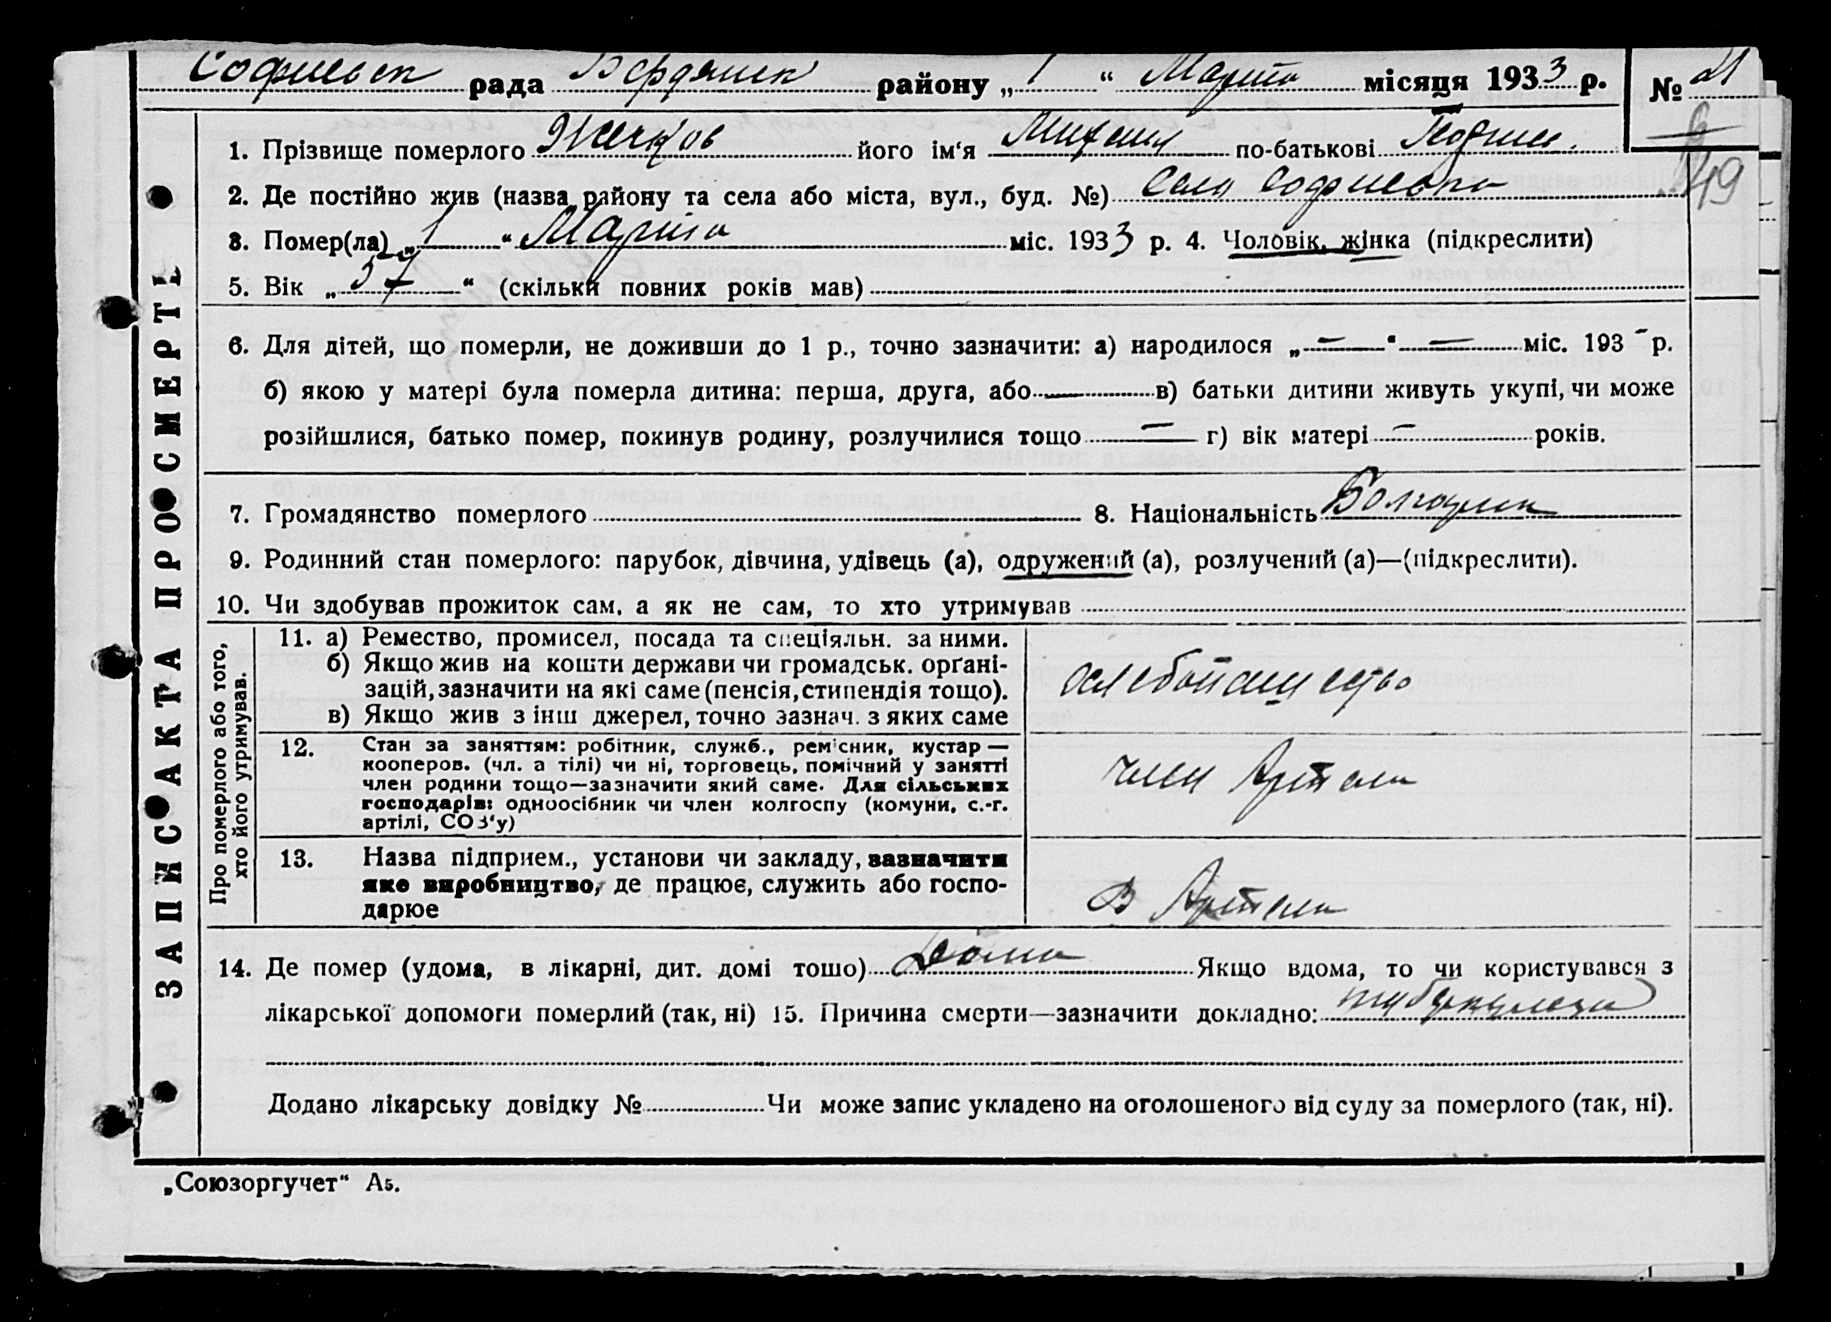 Софиевск рада Бердянск району „1“ Марта місяця 1933 р. № 21
1. Прізвище померлого Жечков його ім‘я Михаил по-батькові
49
2. Де постійно жив (назва району та села або міста, вул., буд. №) Село Софиевка
3. Помер(ла) „1“ Марта міс. 1933 р. 4. Чоловік, жінка (підкреслити)
5. Вік „57“ (скільки повних років мав)
6. Для дітей, що померли, не доживши до 1 р., точно зазначити: а) народилося „—“ — міс. 193 - р.
б) якою у матері була померла дитина: перша, друга, або — в) батьки дитини живуть укупі, чи може
розійшлися, батько помер, покинув родину, розлучилися тощо — г) вік матері — років.
7. Громадянство померлого 8. Національність Болгарин
9. Родинний стан померлого: парубок, дівчина, удівець (а), одружений (а), розлучений (а)—(підкреслити).
10. Чи здобував прожиток сам, а як не сам, то хто утримував
ЗАПИС АКТА ПРО СМЕРТЬ
Про померлого або того,
хто його утримував.
11. а) Ремество, промисел, посада та спеціяльн. за ними.
б) Якщо жив на кошти держави чи громадськ. орґані-
зацій, зазначити на які саме (пенсія, стипендія тощо).
в) Якщо жив з інш джерел, точно зазнач. з яких саме
12. Стан за заняттям: робітник, служб., рем‘сник, кустар —
кооперов. (чл. а тілі) чи ні, торговець, помічний у занятті
член родини тощо—зазначити який саме. Для сільських
господарів: одноосібник чи член колгоспу (комуни, с.-г.
артілі, СОЗ‘у)
член Артели
13. Назва підприєм., установи чи закладу, зазначити
яке виробництво, де працює, служить або госпо-
дарює
В Артели
14. Де помер (удома, в лікарні, дит. домі тошо) Дома Якщо вдома, то чи користувався з
лікарської допомоги померлий (так, ні) 15. Причина смерти—зазначити докладно: туберкулеза
Додано лікарську довідку № Чи може запис укладено на оголошеного від суду за померлого (так, ні).
„Союзоргучет“ А5.